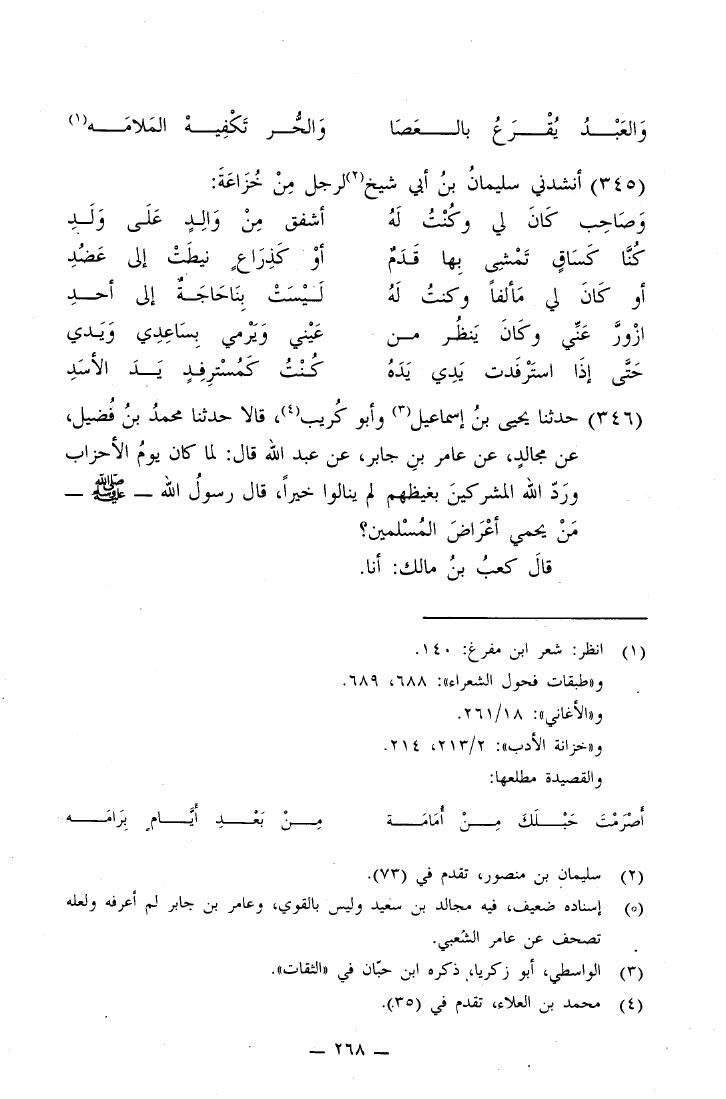 وَالعَبْـــدُ يُقْـــرَعُ بالـــعَصَا وَالحُـــر تَكْفِيـــهْ المَلامَـــه(١)
(٣٤٥) أنشدني سليمانُ بنُ أبي شيخ(٢)لرجل مِنْ خُزَاعَةَ:
وَصَاحِب كَانَ لي وكُنْتُ لَهُ أشفق مِنْ وَالِدٍ عَلَى وَلَدِ
كُنَّا كَسَاقٍ تَمْشِى بِها قَدَمٌ أوْ كَذِرَاعٍ نيطَتْ إلى عَضُدِ
أو كَانَ لي مَألفاً وكنتُ لَهُ لَيْسَتْ بِنَاحَاجَةٌ إلى أحدِ
ازْورَّ عَنِّي وكَانَ يَنظُر مـن عَيْني وَيَرْمي بِسَاعِدِي وَيَدي
حَتَّى إذَا استَرْفَدت يَدِي يَدَهُ كُنْتُ كَمُسْترفِدٍ يَدَ الأسَدِ
(٣٤٦) حدثنا يحيى بنُ إسماعيل(٣) وأبو كُريب(٤)، قالا حدثنا محمدُ بنُ فُضيل،
عن مجالدٍ، عن عامر بنِ جابر، عن عبد الله قال: لما كان يومُ الأحزاب
ورَدّ الله المشركينَ بغيظهم لم ينالوا خيراً، قال رسولُ الله ــ ﷺ ــ
مَنْ يحمي أعْرَاضَ المُسْلمين؟
قالَ كعبُ بنُ مالك: أنا.
(١) انظر: شعر ابن مفرغ: ١٤٠.
و«طبقات فحول الشعراء»: ٦٨٨، ٦٨٩.
و«الأغاني»: ٢٦١/١٨.
و«خزانة الأدب»: ٢١٣/٢، ٢١٤.
والقصيدة مطلعها:
أصْرَمْتَ حَبْـلَكَ مِـنْ أُمَامَـة مِـنْ بَعْـدِ أيَّـامٍ بِرَامَـه
(٢) سليمان بن منصور، تقدم في (٧٣).
(٥) إسناده ضعيف، فيه مجالد بن سعيد وليس بالقوي، وعامر بن جابر لم أعرفه ولعله
تصحف عن عامر الشَعبي.
(٣) الواسطي، أبو زكريا، ذكره ابن حبّان في «الثقات».
(٤) محمد بن العلاء، تقدم في (٣٥).
ــ ٢٦٨ ــ